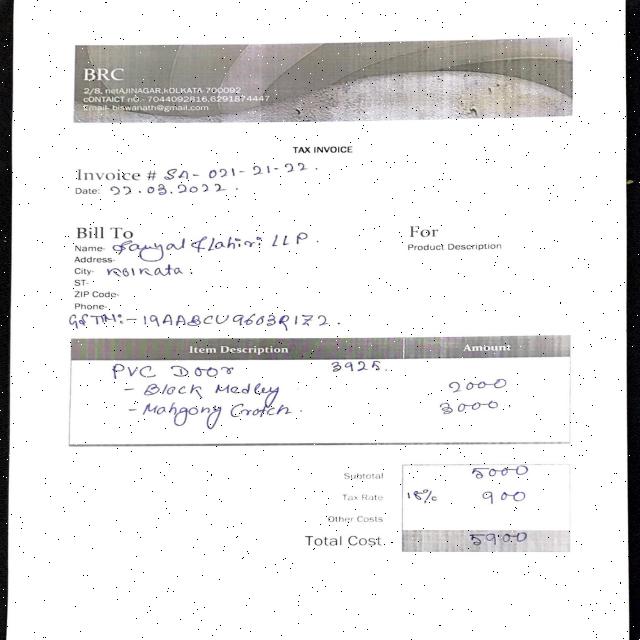 BRC
2/8, netAJINAGAR,kOLKATA 700092
cONTAICT nO:- 7044092816,6291874447
Email- biswanath@gmail.com
TAX INVOICE
Invoice # SA- 021-21-22.
Date: 22.03.2022.
Bill To
For
Name- Sanyal & Lahiri LLP.
Product Description
Address-
City- Kolkata.
ST-
ZIP Code-
Phone-
GSTIN:- 19AABCU9603R1Z2.
Item Description Amount
PVC Door 3925
- Black Medley 2000
- Mahgony Crotch. 3000.
Subtotal 5000
Tax Rate 18% 900
Other Costs
Total Cost. 5900